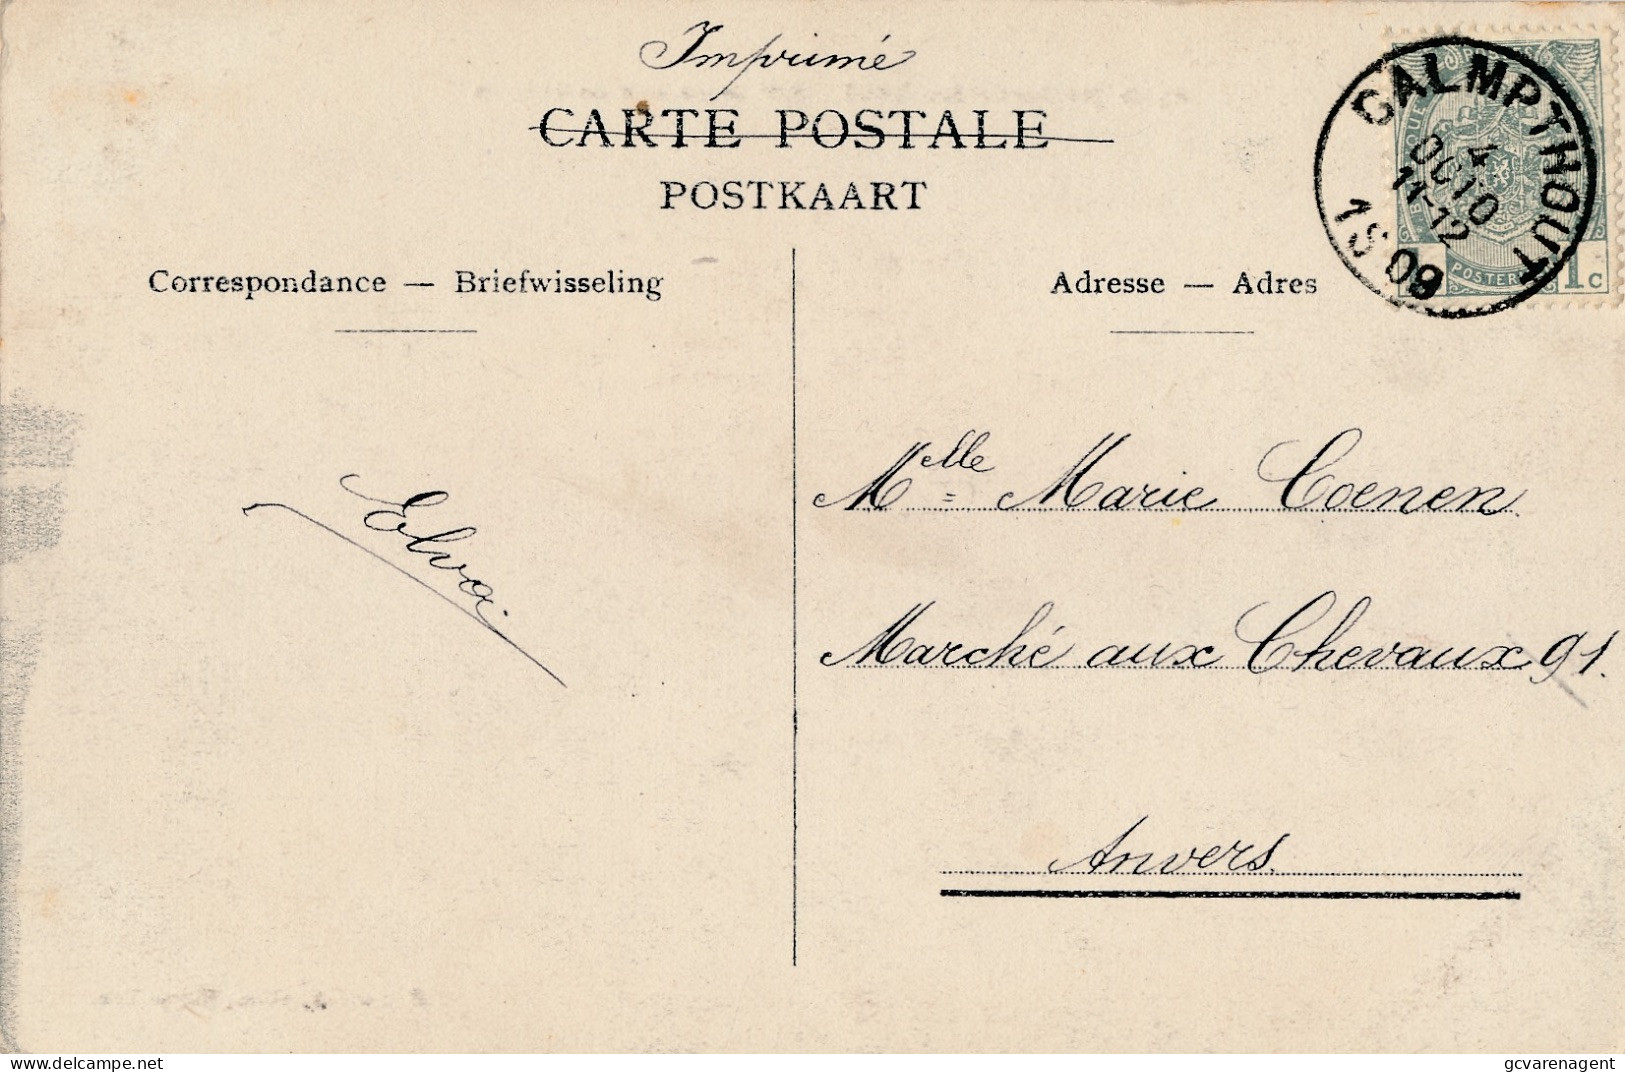 Imprimé
CARTE POSTALE
POSTKAART
CALMPTHOUT
4
OCTO
11-12
1909
POSTER
1c
Correspondance — Briefwisseling
Adresse — Adres
Elva.
Mlle Marie Coenen
Marché aux Chevaux 91.
Anvers.
delcampe.net
gcvarenagent